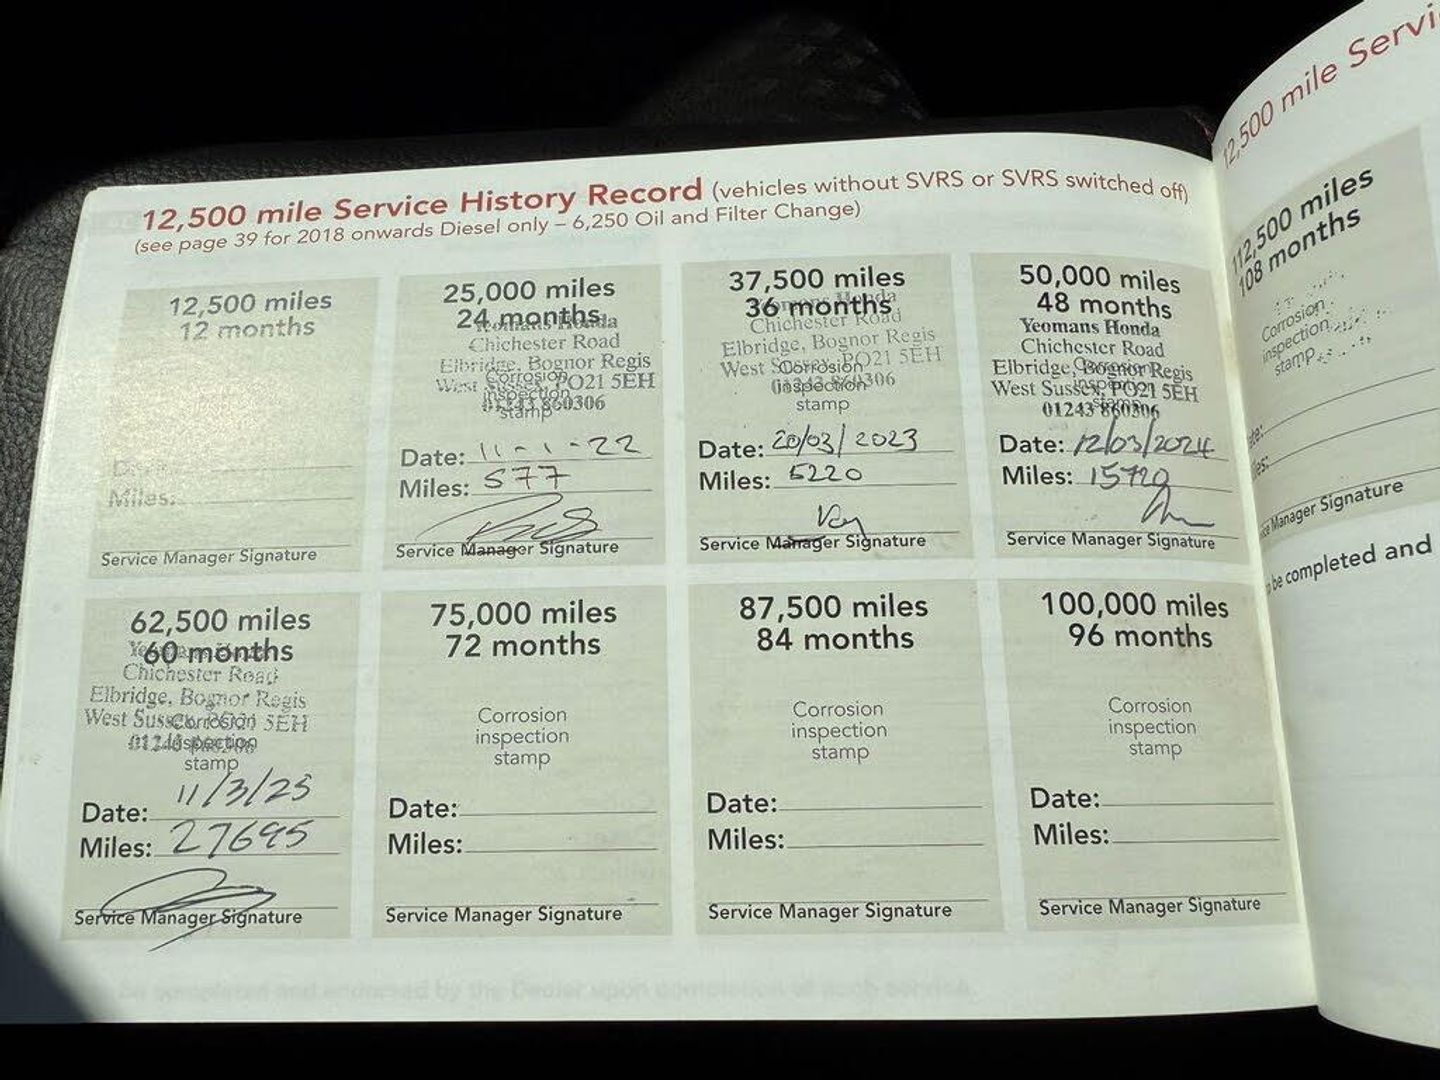 12,500 mile Service History Record (vehicles without SVRS or SVRS switched off)
(see page 39 for 2018 onwards Diesel only – 6,250 Oil and Filter Change)
12,500 miles
12 months
Date:
Miles:
Service Manager Signature
25,000 miles
24 months
Yeomans Honda
Chichester Road
Elbridge, Bognor Regis
West Sussex, PO21 5EH
01243 860306
Corrosion
inspection
stamp
Date: 11-1-22
Miles: 577
Service Manager Signature
37,500 miles
36 months
Yeomans Honda
Chichester Road
Elbridge, Bognor Regis
West Sussex, PO21 5EH
01243 860306
Corrosion
inspection
stamp
Date: 20/03/2023
Miles: 6220
Service Manager Signature
50,000 miles
48 months
Yeomans Honda
Chichester Road
Elbridge, Bognor Regis
West Sussex, PO21 5EH
01243 860306
Corrosion
inspection
stamp
Date: 12/03/2024
Miles: 15720
Service Manager Signature
62,500 miles
60 months
Yeomans Honda
Chichester Road
Elbridge, Bognor Regis
West Sussex, PO21 5EH
01243 860306
Corrosion
inspection
stamp
Date: 11/3/25
Miles: 27695
Service Manager Signature
75,000 miles
72 months
Corrosion
inspection
stamp
Date:
Miles:
Service Manager Signature
87,500 miles
84 months
Corrosion
inspection
stamp
Date:
Miles:
Service Manager Signature
100,000 miles
96 months
Corrosion
inspection
stamp
Date:
Miles:
Service Manager Signature
12,500 mile Servi
112,500 miles
108 months
Corrosion
inspection
stamp
Manager Signature
be completed and